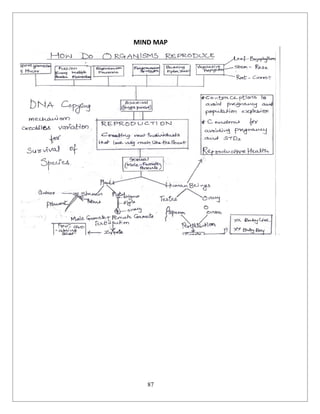 MIND MAP
HOW DO ORGANISMS REPRODUCE
Leaf - Bryophyllum
Stem - Rose
Root - Carrot
Fission
Regeneration
Planaria
Budding
Hydra, Yeast
Vegetative
Propagation
DNA Copying
mechanism
creates variation
for
Survival of
Species
Asexual
(Single parent)
REPRODUCTION
Creating new individuals
that look very much like the Parent
Sexual
(Male & Female
Parents)
* Contraceptions to
avoid pregnancy and
population explosion
* Condoms for
avoiding pregnancy
and STDs
Reproductive Health
Plants
Human Beings
Stamen
Stigma
Style
ovary
Male Gamete + Female Gamete
Fertilisation
Zygote
Testes
Ovary
Sperm
ovum
Fertilisation
XX Baby Girl
XY Baby Boy
87